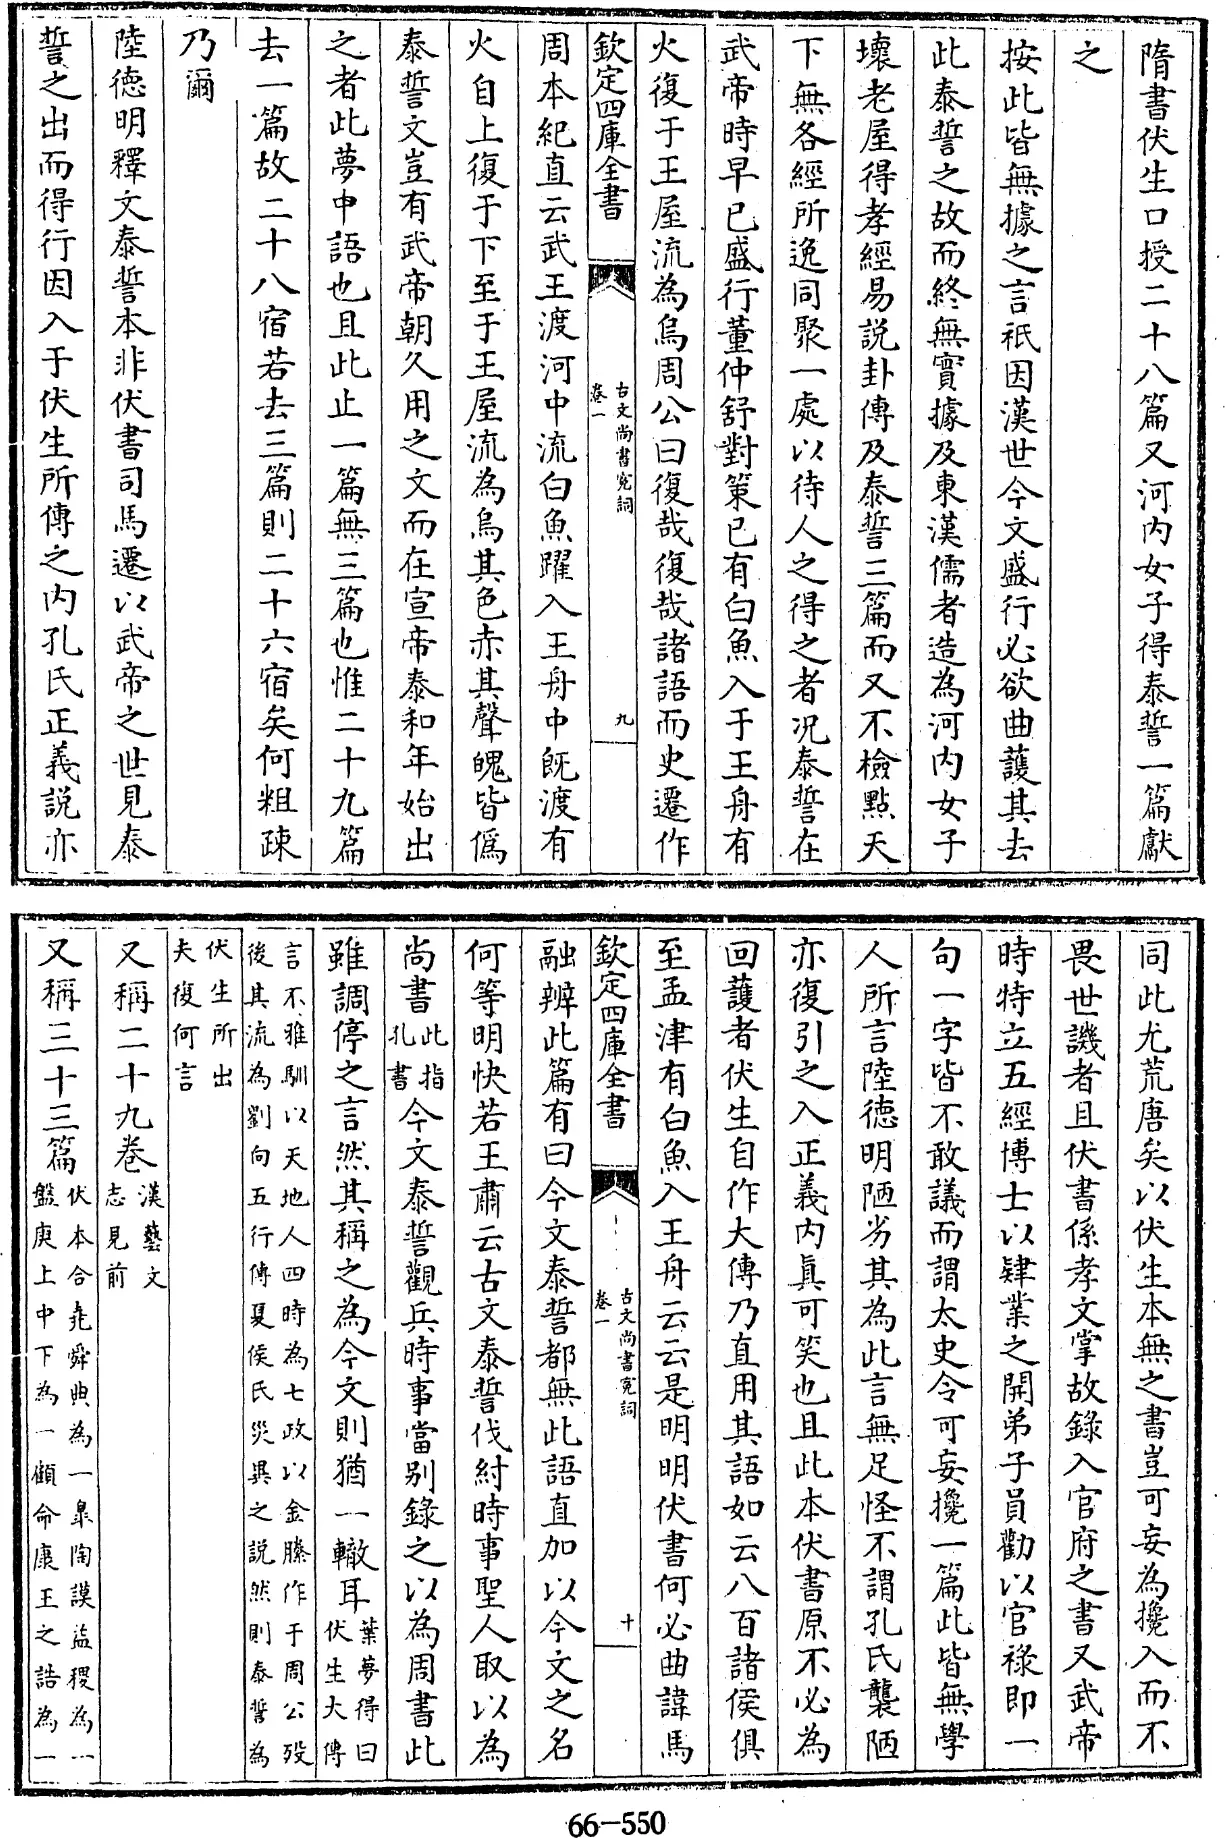 隋書伏生口授二十八篇又河内女子得泰誓一篇獻
之
按此皆無據之言祇因漢世今文盛行必欲曲護其去
此泰誓之故而終無實據及東漢儒者造為河内女子
壞老屋得孝經易説卦傳及泰誓三篇而又不檢點天
下無各經所逸同聚一處以待人之得之者况泰誓在
武帝時早已盛行董仲舒對策已有白魚入于王舟有
火復于王屋流為烏周公曰復哉復哉諸語而史遷作
欽定四庫全書
古文尚書寃詞
卷一
九
周本紀直云武王渡河中流白魚躍入王舟中既渡有
火自上復于下至于王屋流為烏其色赤其聲魄皆僞
泰誓文豈有武帝朝久用之文而在宣帝泰和年始出
之者此夢中語也且此止一篇無三篇也惟二十九篇
去一篇故二十八宿若去三篇則二十六宿矣何粗疎
乃爾
陸德明釋文泰誓本非伏書司馬遷以武帝之世見泰
誓之出而得行因入于伏生所傳之内孔氏正義説亦
同此尤荒唐矣以伏生本無之書豈可妄為攙入而不
畏世譏者且伏書係孝文掌故錄入官府之書又武帝
時特立五經博士以肄業之開弟子員勸以官祿即一
句一字皆不敢議而謂太史令可妄攙一篇此皆無學
人所言陸德明陋劣其為此言無足怪不謂孔氏襲陋
亦復引之入正義内真可笑也且此本伏書原不必為
回護者伏生自作大傳乃直用其語如云八百諸侯俱
至孟津有白魚入王舟云云是明明伏書何必曲諱馬
欽定四庫全書
古文尚書寃詞
卷一
十
融辨此篇有曰今文泰誓都無此語直加以今文之名
何等明快若王肅云古文泰誓伐紂時事聖人取以為
尚書此指孔書今文泰誓觀兵時事當别錄之以為周書此
雖調停之言然其稱之為今文則猶一轍耳葉夢得曰伏生大傳
言不雅馴以天地人四時為七政以金縢作于周公歿
後其流為劉向五行傳夏侯氏災異之説然則泰誓為
伏生所出
夫復何言
又稱二十九卷漢藝文志見前
又稱三十三篇伏本合堯舜典為一臯陶謨益稷為一
盤庚上中下為一顧命康王之誥為一
66-550